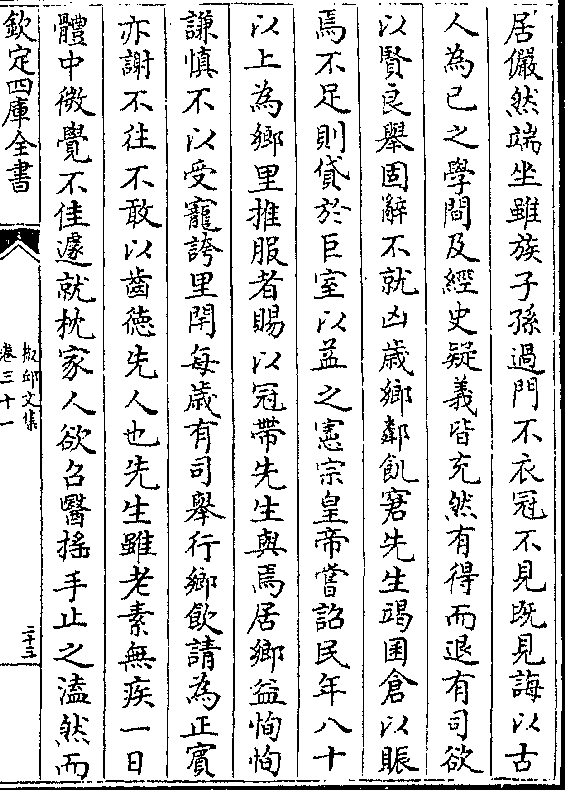 居儼然端坐雖族子孫過門不衣冠不見既見誨以古
人為已之學間及經史疑義皆充然有得而退有司欲
以賢良舉固辭不就凶歳鄉鄰飢窘先生竭囷倉以賑
焉不足則貸於巨室以益之憲宗皇帝嘗詔民年八十
以上為鄉里推服者賜以冠帶先生與焉居鄉益恂恂
謙慎不以受寵誇里閈每歳有司舉行鄉飲請為正賓
亦謝不往不敢以齒徳先人也先生雖老素無疾一日
體中微覺不佳遽就枕家人欲召醫揺手止之溘然而
欽定四庫全書
椒邱文集
卷三十一
二十三